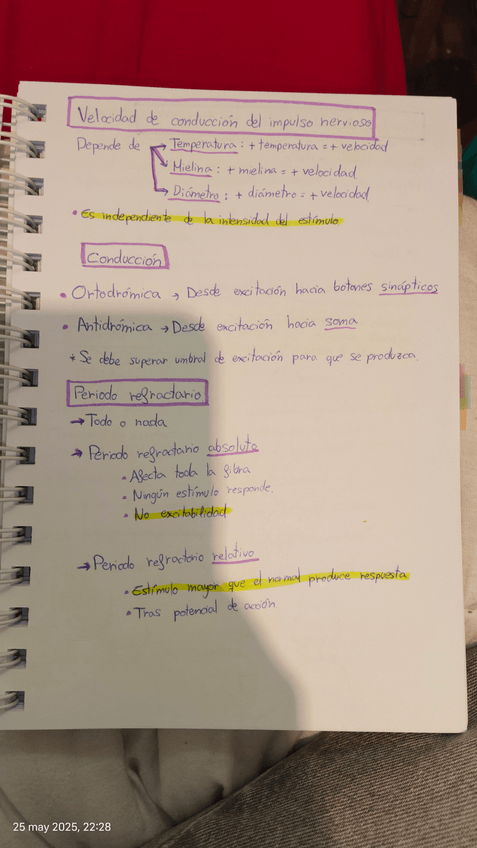 Velocidad de conducción del impulso nervioso
Depende de → Temperatura: + temperatura = + velocidad
→ Mielina: + mielina = + velocidad
→ Diámetro: + diámetro = + velocidad
• Es independiente de la intensidad del estímulo
Conducción
• Ortodrómica → Desde excitación hacia botones sinápticos
• Antidrómica → Desde excitación hacia soma
* Se debe superar umbral de excitación para que se produzca
Periodo refractario
→ Todo o nada
→ Periodo refractario absoluto
• Afecta toda la fibra
• Ningún estímulo responde.
• No excitabilidad
→ Periodo refractario relativo
• Estímulo mayor que el normal produce respuesta
• Tras potencial de acción
25 may 2025, 22:28